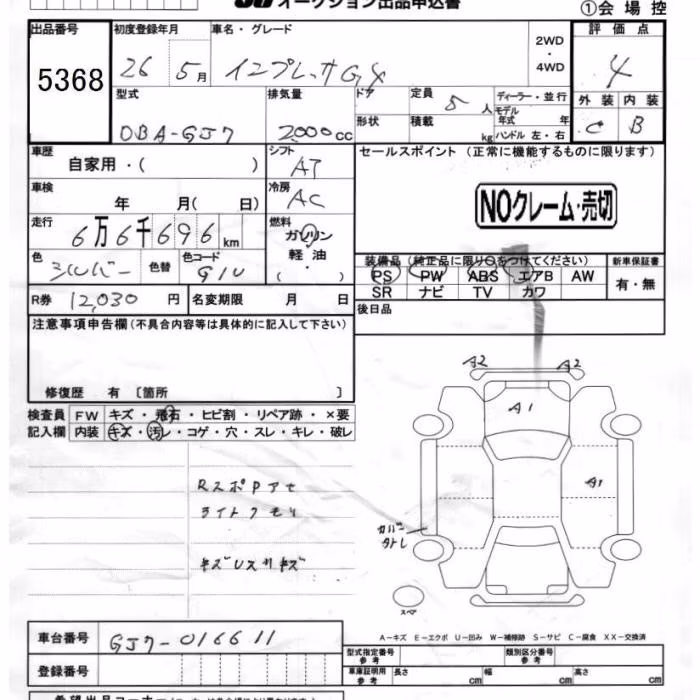 オークション出品申込書
①会場控
出品番号
5368
初度登録年月
26 5月
車名・グレード
インプレッサG4
2WD
・
4WD
評価点
4
外装 内装
C B
型式
DBA-GJ7
排気量
2,000cc
ドア
形状
定員
5人
積載
kg
ディーラー・並行
モデル年式 年
ハンドル 左・右
車歴
自家用・( )
シフト
AT
セールスポイント (正常に機能するものに限ります)
NOクレーム・売切
車検
年 月( 日)
冷房
AC
走行
6万6千696km
燃料
ガソリン
軽油
・( )
色
シルバー
色替
色コード
G1U
装備品 (純正品に限り○をつけてください)
PS PW ABS エアB AW
SR ナビ TV カワ
新車保証書
有・無
R券 12,030円
名変期限 月 日
後日品
注意事項申告欄(不具合内容等は具体的に記入して下さい)
修復歴 有 〔箇所 〕
検査員
記入欄
FW キズ・飛石・ヒビ割・リペア跡・×要
内装 キズ・汚レ・コゲ・穴・スレ・キレ・破レ
A2 A2
A1
A1
Rスポアセ
ライトクモリ
カバー
タトレ
キズUスサキズ
スペア
A-キズ E-エクボ U-凹み W-補修跡 S-サビ C-腐食 XX-交換済
車台番号 GJ7-016611
登録番号
型式指定番号
参考
類別区分番号
参考
車庫証明用
参考
長さ cm
幅 cm
高さ cm